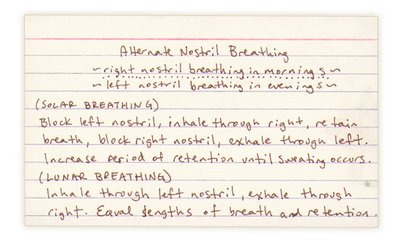 Alternate Nostril Breathing
~right nostril breathing in mornings~
~left nostril breathing in evenings~
(SOLAR BREATHING)
Block left nostril, inhale through right, retain
breath, block right nostril, exhale through left.
Increase period of retention until sweating occurs.
(LUNAR BREATHING)
Inhale through left nostril, exhale through
right. Equal lengths of breath and retention.